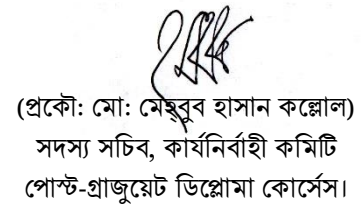 (প্রকৌ: মো: মেহবুব হাসান কল্লোল)
সদস্য সচিব, কার্যনির্বাহী কমিটি
পোস্ট-গ্রাজুয়েট ডিপ্লোমা কোর্সেস।